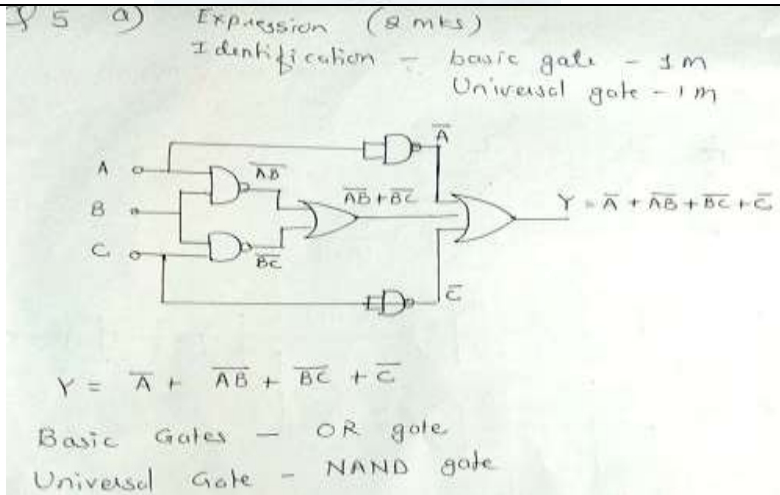 Q 5 a) Expression (2 mks)
Identification - basic gate - 1m
Universal gate - 1m
A̅
A
A̅B̅
B
A̅B̅ + B̅C̅
Y = A̅ + A̅B̅ + B̅C̅ + C̅
C
B̅C̅
C̅
Y = A̅ + A̅B̅ + B̅C̅ + C̅
Basic Gates - OR gate
Universal Gate - NAND gate